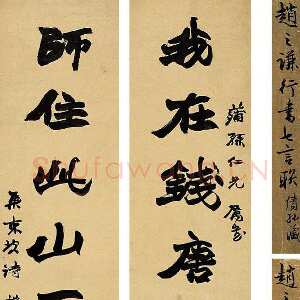 趙之謙行書七言聯
趙之
我在錢唐
蒲孫仁兄屬書
師住此山
集東坡詩